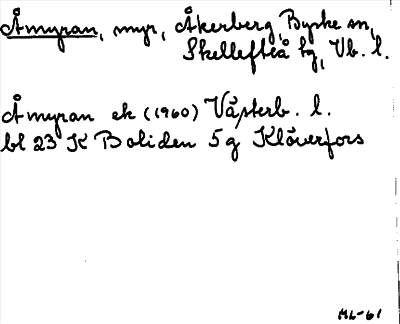 Åmyran, myr, Åkerberg, Byske sn,
Skellefteå tg, Vb. l.
Åmyran ek (1960) Västerb. l.
bl 23 K Boliden 5 g Klöverfors
ML-61